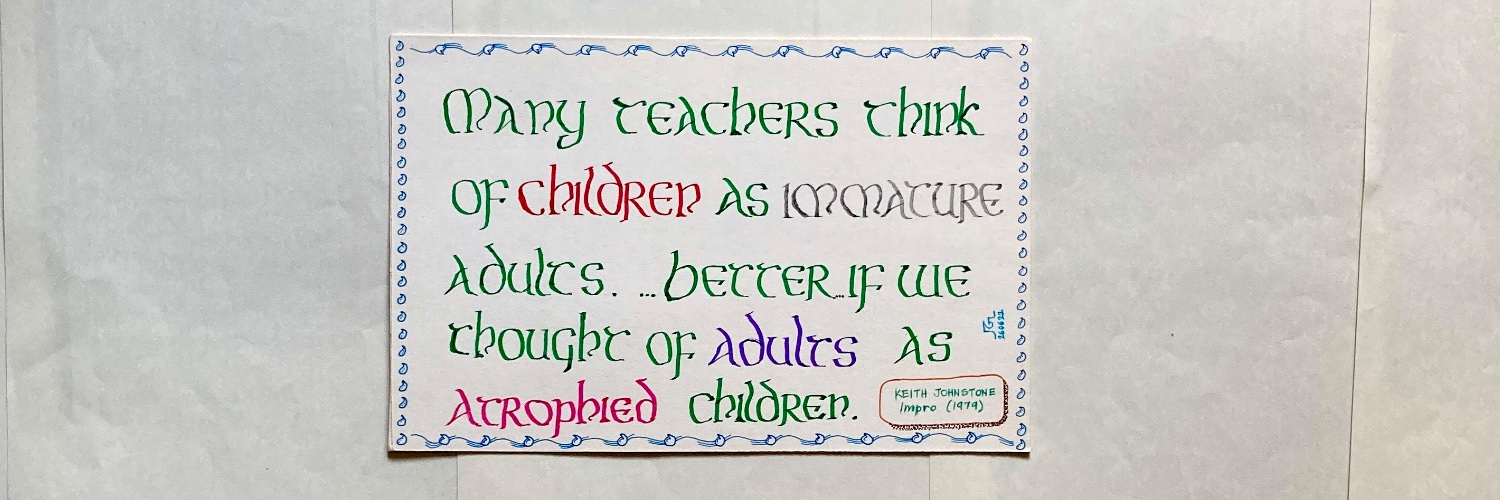 Many teachers think
of children as immature
adults. ...better...if we
thought of adults as
atrophied children.
KEITH JOHNSTONE
Impro (1979)